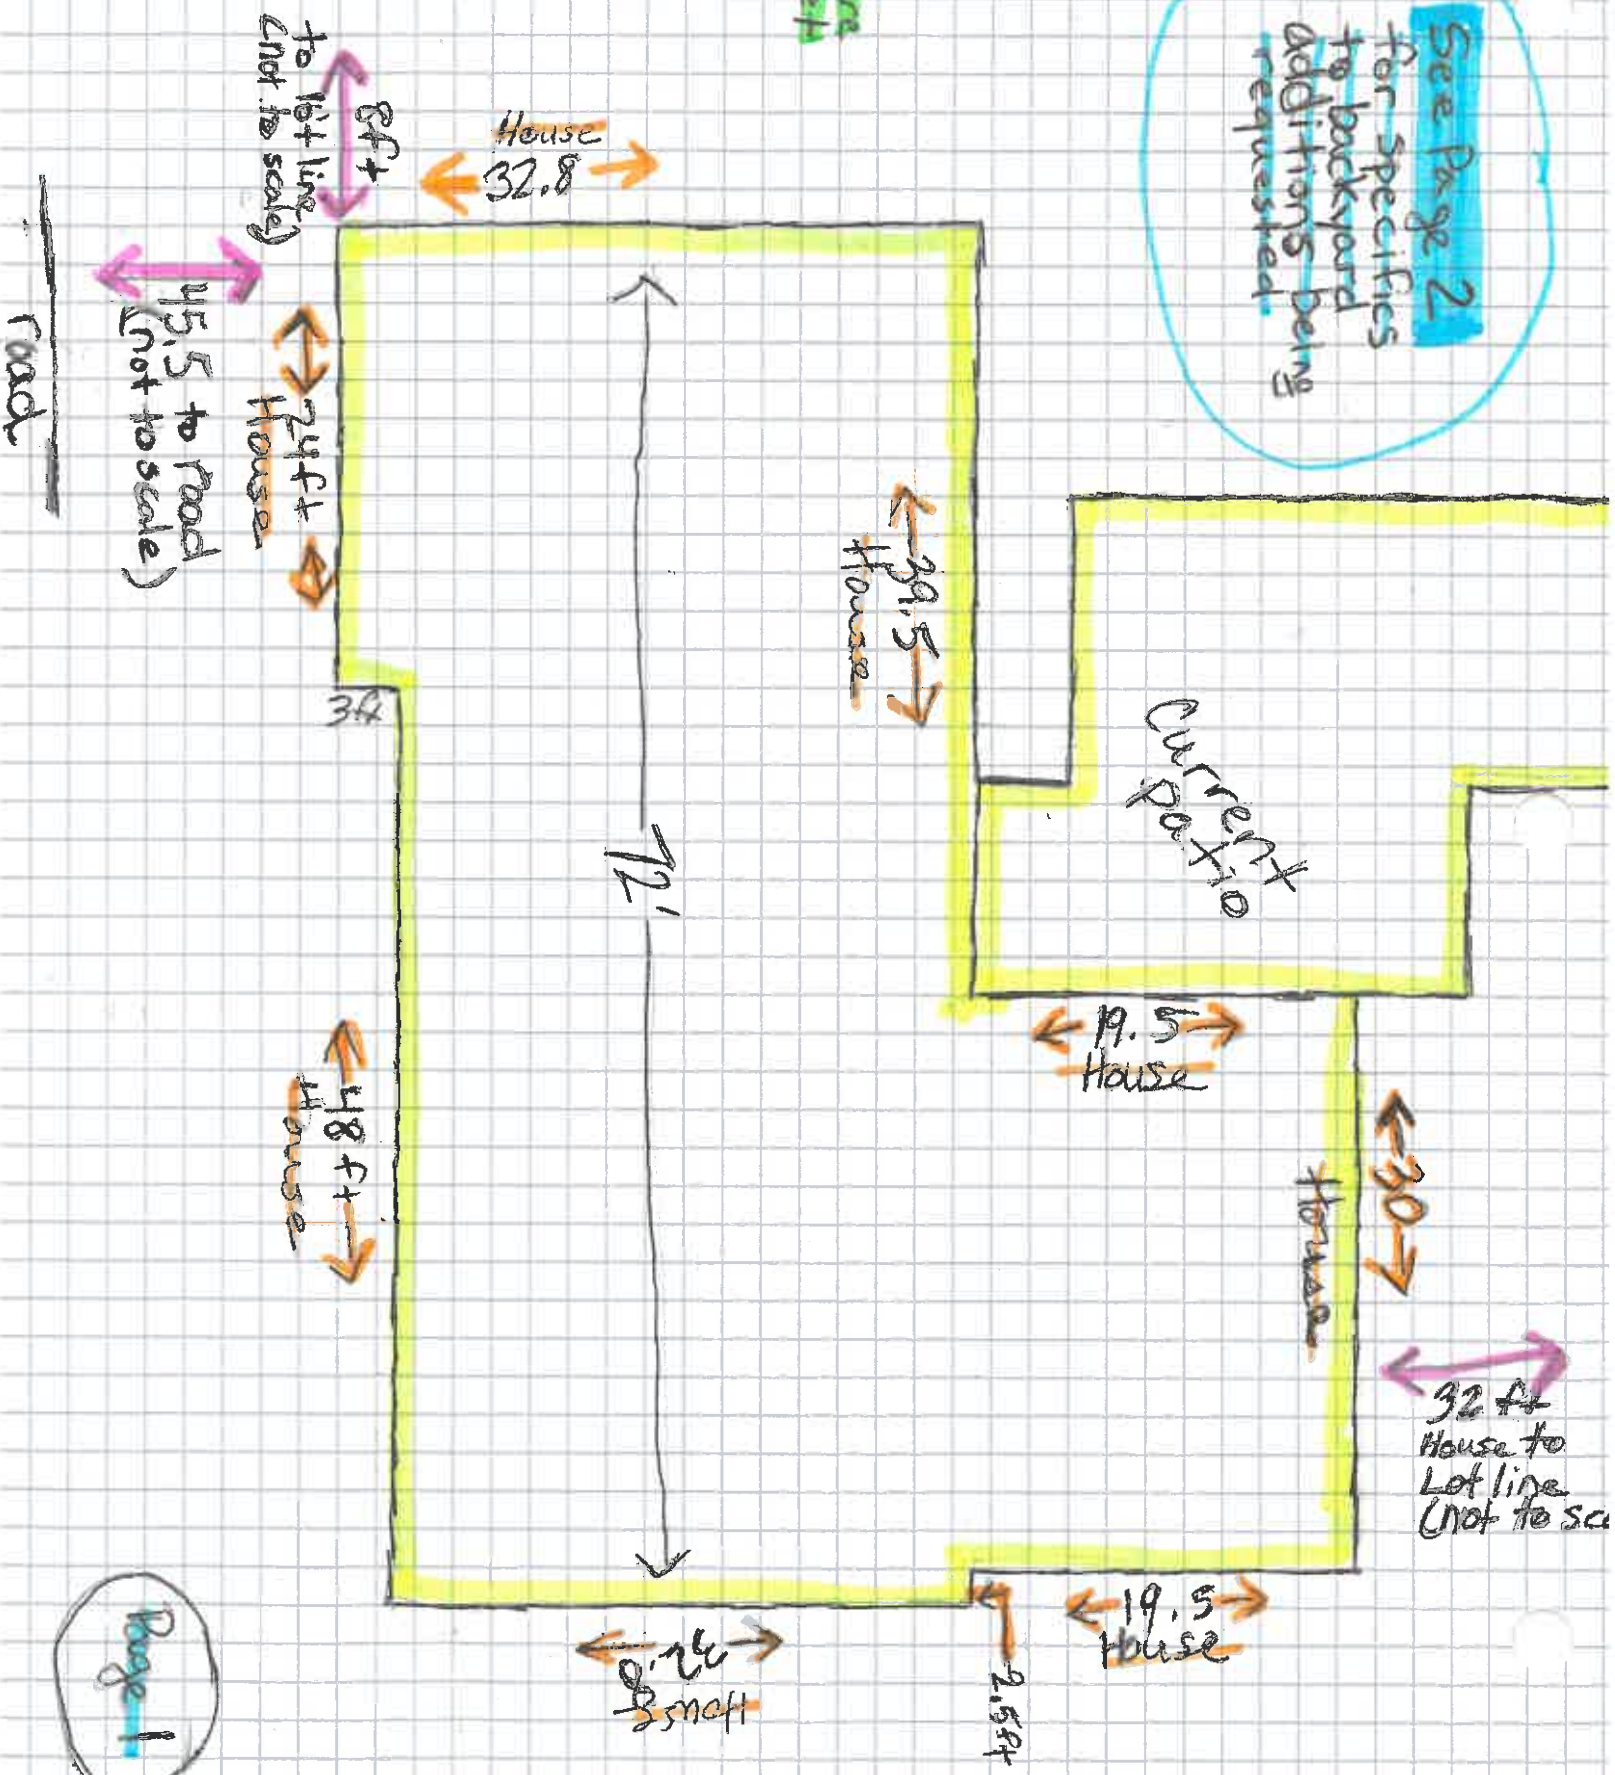 See Page 2
for specifics
to backyard
additions being
requested
House
32.8
8ft
to lot line
(not to scale)
45.5 to road
(not to scale)
road
24ft
House
3ft
39.5
House
Current
patio
72'
19.5
House
30
House
48 ft
House
32 ft
House to
Lot line
(not to sca
19.5
House
2.5ft
32.8
House
Page 1